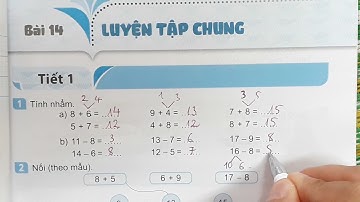 Bài 14 LUYỆN TẬP CHUNG
Tiết 1
1 Tính nhẩm.
2 4 1 3 3 5
a) 8 + 6 = 14 9 + 4 = 13 7 + 8 = 15
5 + 7 = 12 4 + 8 = 12 8 + 7 = 15
b) 11 – 8 = 3 13 – 7 = 6 17 – 9 = 8
14 – 6 = 8 12 – 5 = 7 16 – 8 =
10 6
2 Nối (theo mẫu).
8 + 5 6 + 9 17 – 8